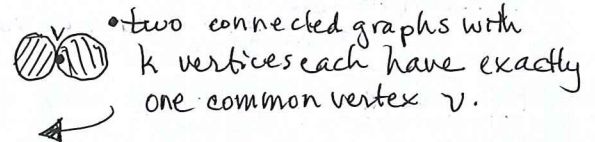 • two connected graphs with
v k vertices each have exactly
one common vertex v.